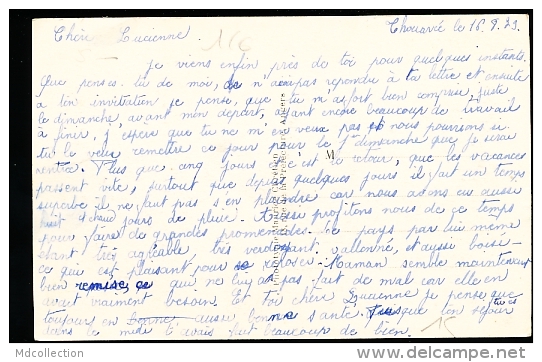 Thouaré le 16.9.23
Chère Lucienne.
Je viens enfin près de toi pour quelques instants.
Que penses-tu de moi, de n'avoir répondu à ta lettre et ensuite
à ton invitation je pense, que tu m'as fort bien compris, juste
le dimanche, avant mon départ, ayant encore beaucoup de travail
à finir, j'espère que tu ne m'en veux pas et nous pouvions si
tu le veux remettre ce jour pour le 1er dimanche que je serai
rentrée. Plus que cinq jours c'est le retour, que les vacances
passent vite, surtout que depuis quelques jours il fait un temps
superbe il ne faut pas s'en plaindre car nous avons eu aussi
huit à chaud jours de pluie. Aussi profitons nous de ce temps
pour faire de grandes promenades. Le pays par lui même
étant très agréable très verdoyant, vallonné, et aussi boisé
ce qui est plaisant pour se reposer. Maman semble maintenant
bien remise, ce que ne lui a pas fait de mal car elle en
avait vraiment besoin. Et toi chère Lucienne je pense que tu es
toujours en bonne santé, que ton séjour
dans le midi t'avais fait beaucoup de bien.
MdCollection
www.delcampe.net